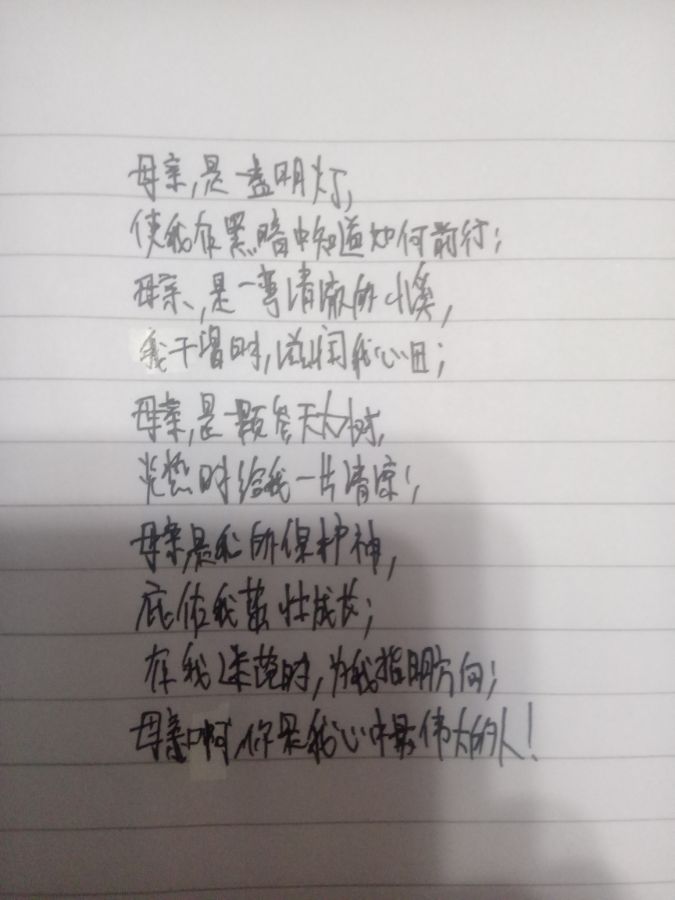 母亲,是一盏明灯,
使我在黑暗中知道如何前行;
母亲,是一弯清澈的小溪,
我干渴时,滋润我心田;
母亲,是一颗参天大树,
炎热时给我一片清凉;
母亲,是我的保护神,
庇佑我茁壮成长;
在我迷茫时,为我指明方向;
母亲啊,你是我心中最伟大的人!